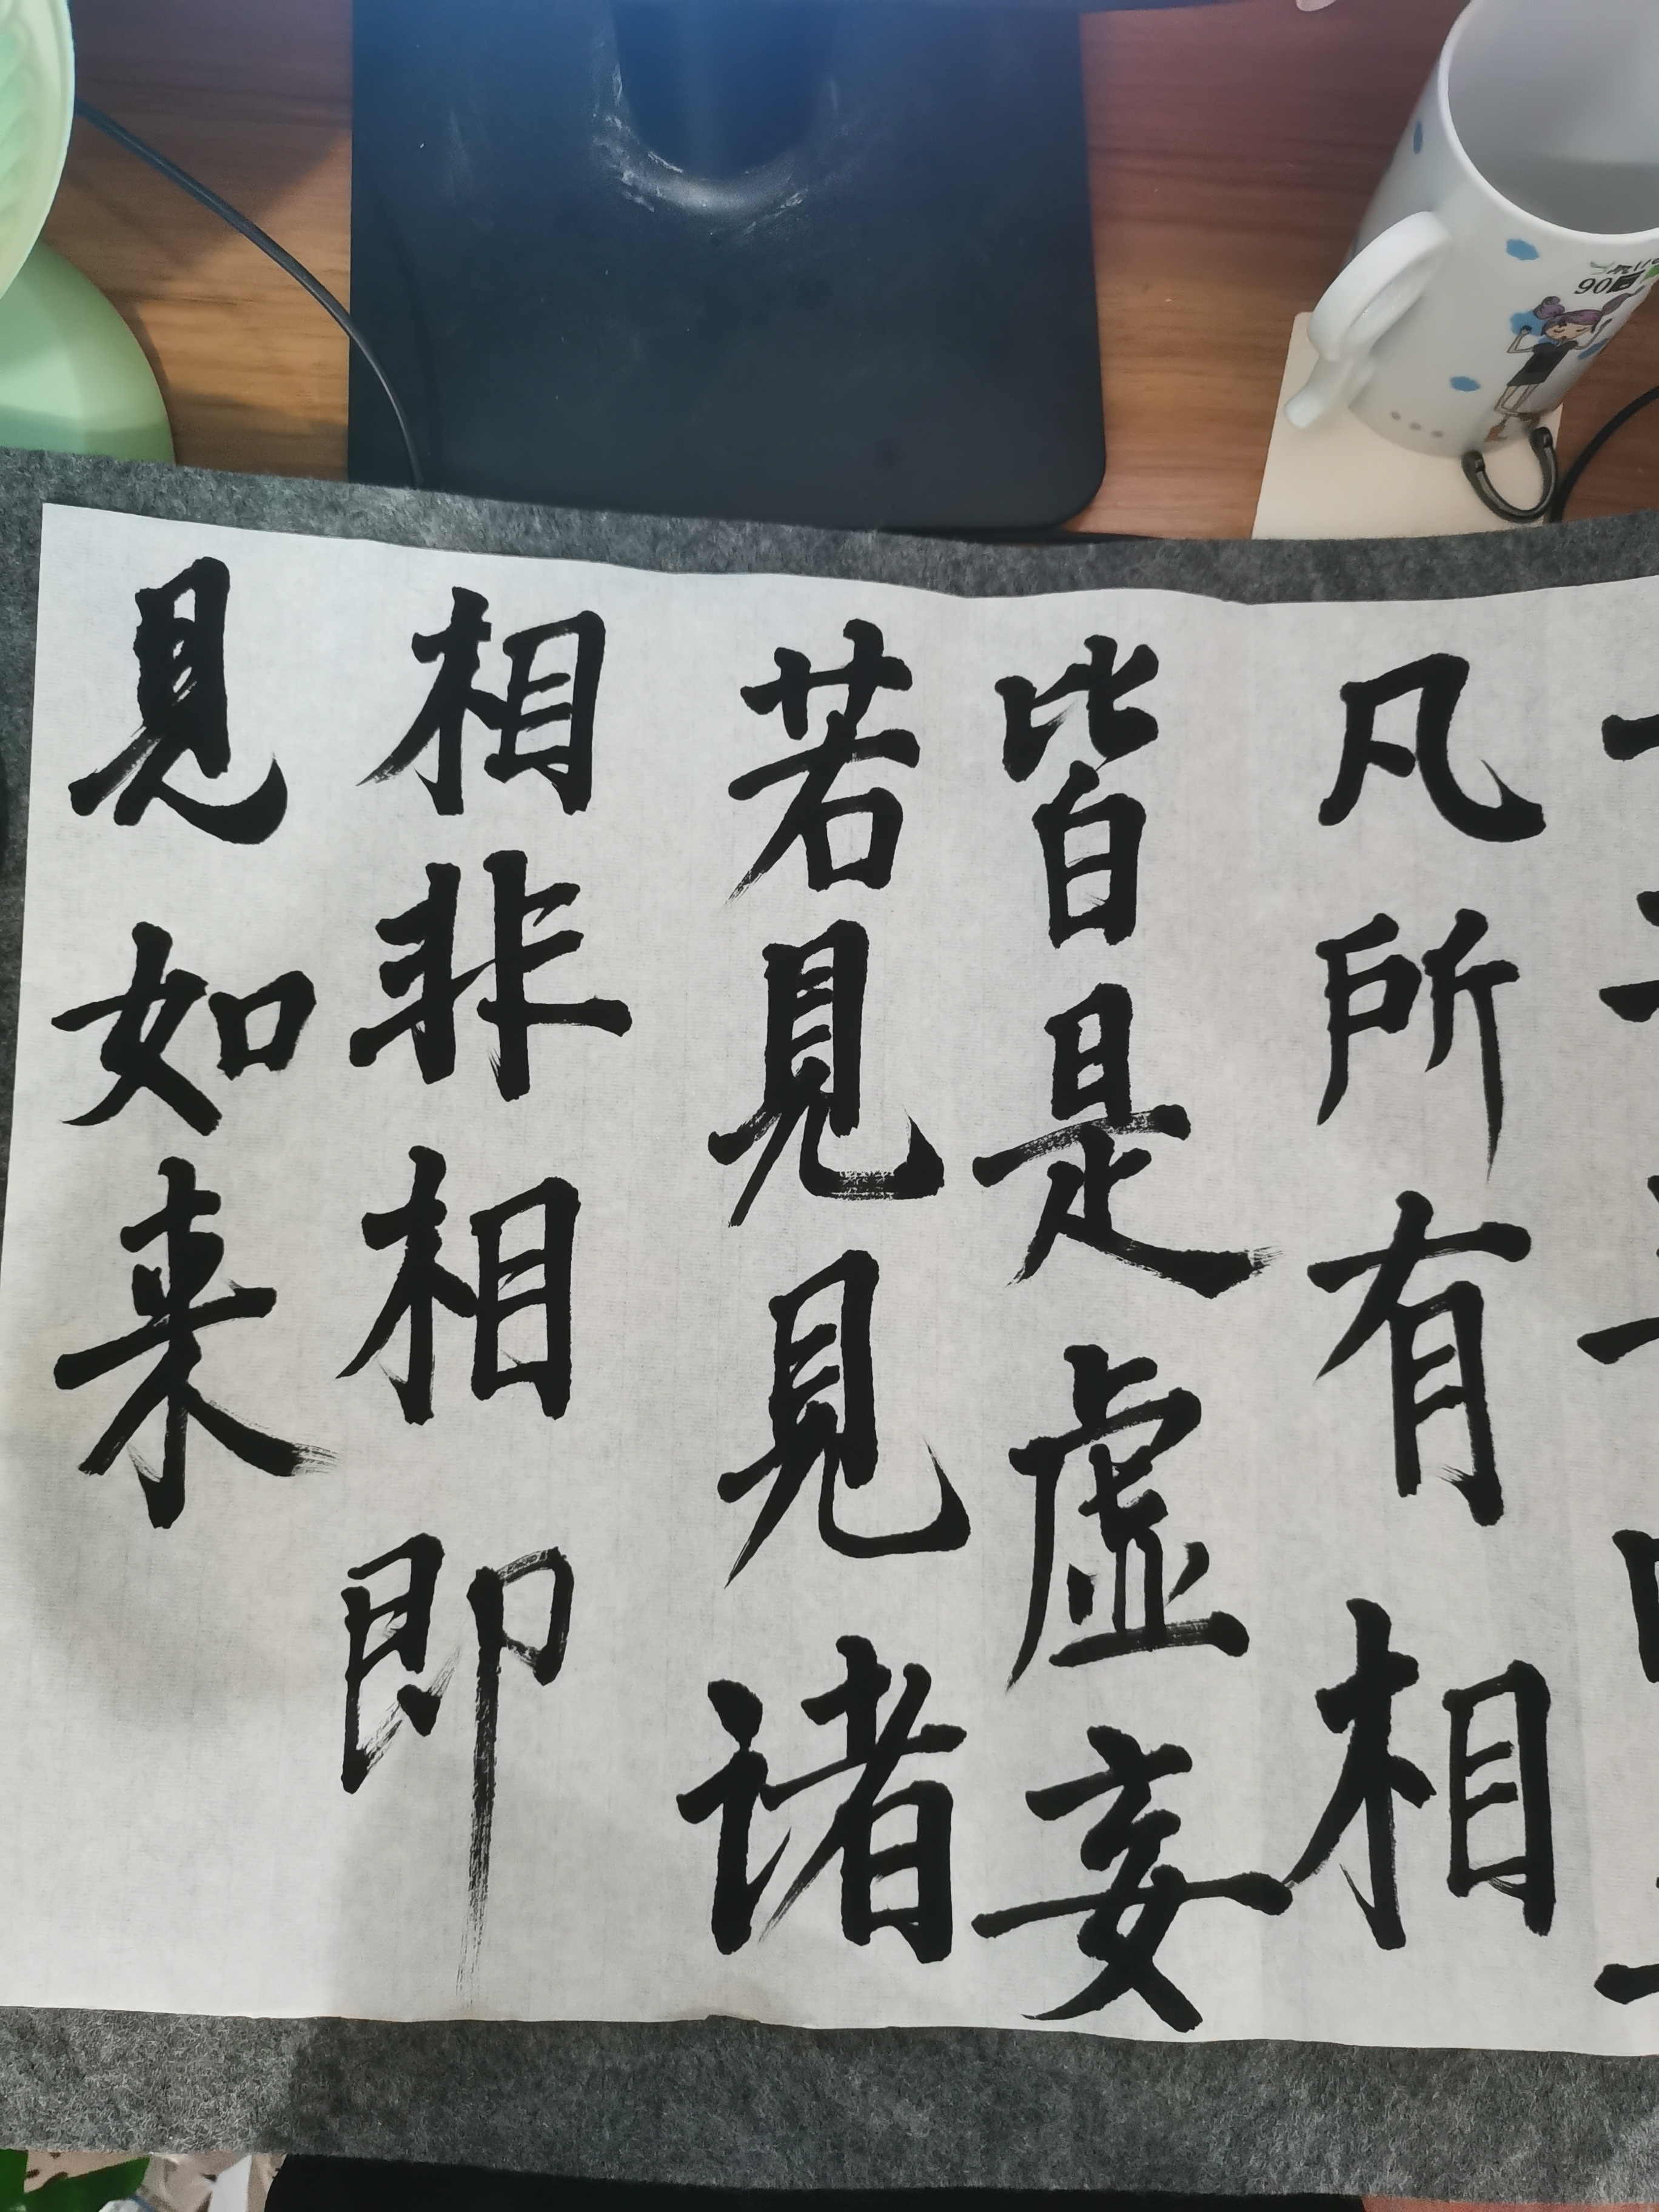 凡所有相
皆是虚妄
若見見诸
相非相即
見如来
90